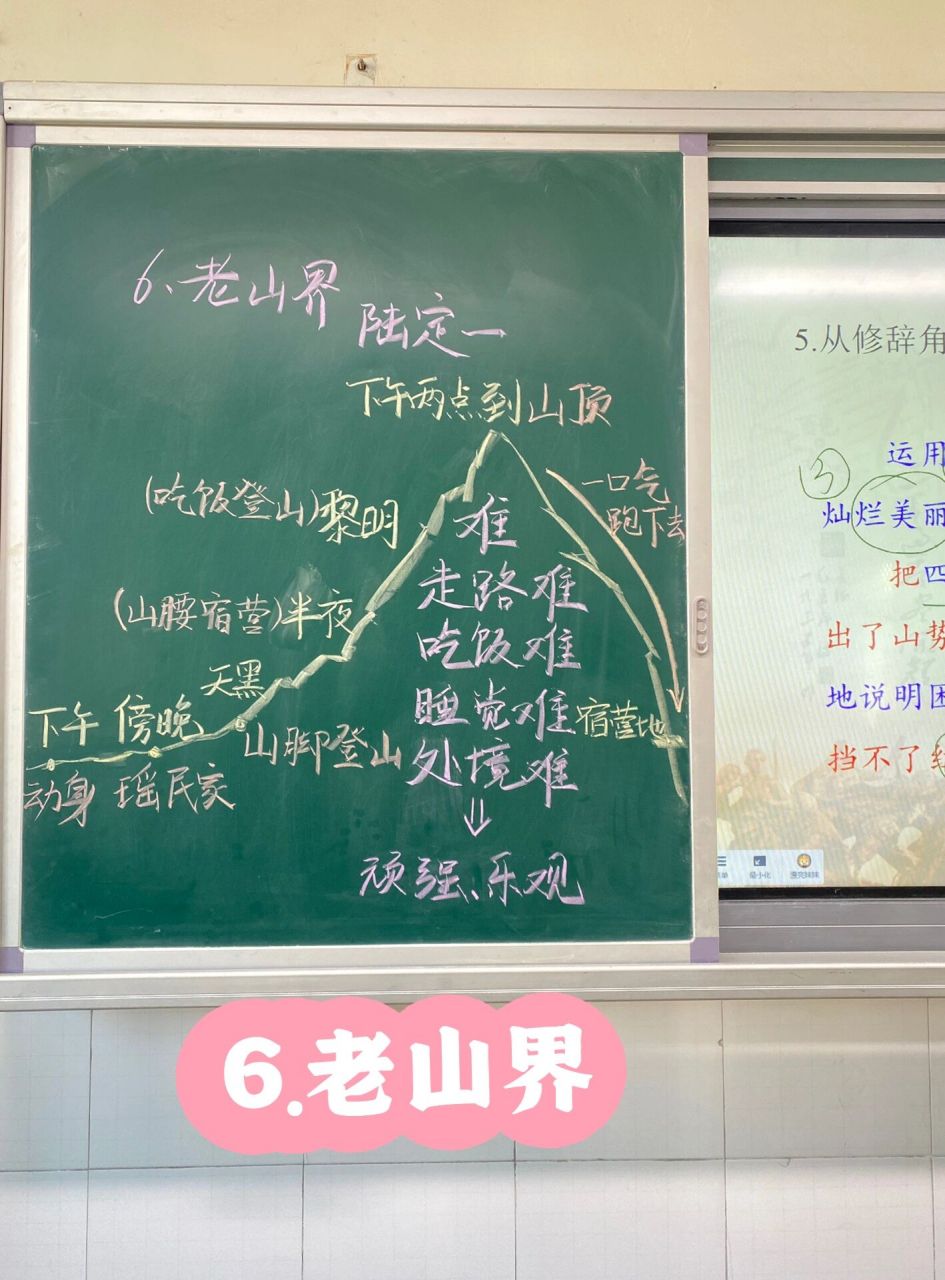 6、老山界
陆定一
下午两点到山顶
一口气
跑下去
(吃饭登山)黎明
难
走路难
(山腰宿营)半夜
吃饭难
天黑
睡觉难
宿营地
下午 傍晚
山脚登山
处境难
动身 瑶民家
顽强、乐观
5.从修辞角
③
运用
灿烂美丽
把四
出了山势
地说明困
挡不了红
最小化
6.老山界